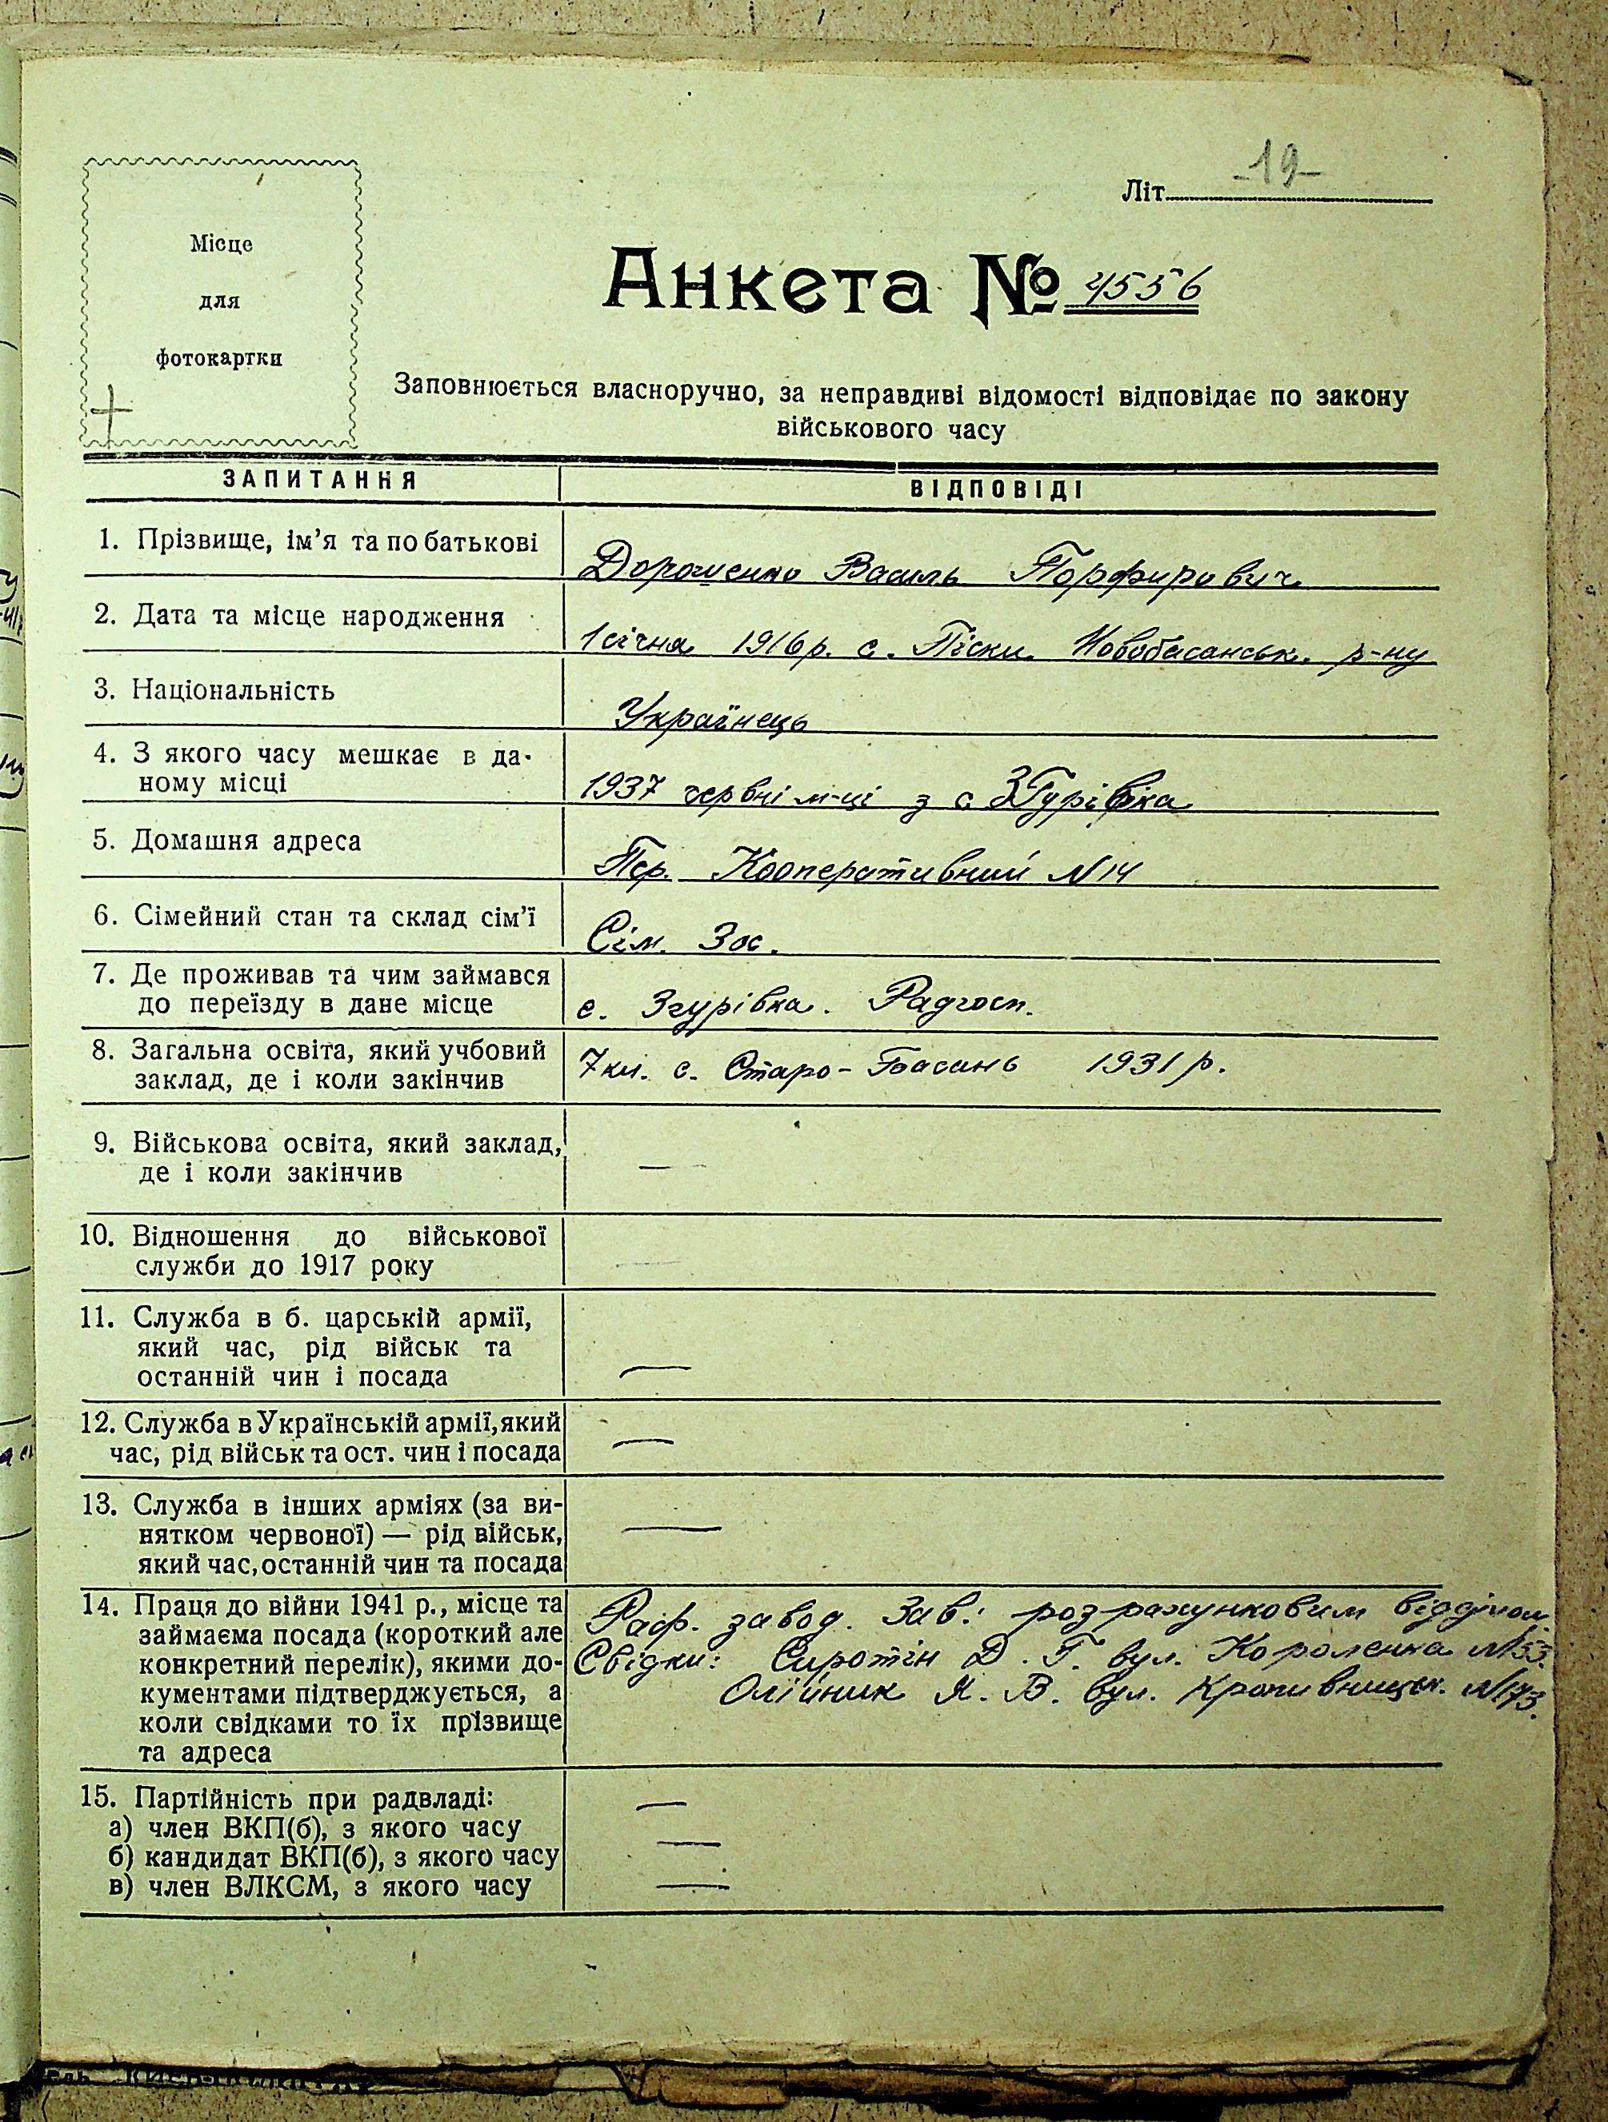 -19-
Літ
Місце
для
фотокартки
Анкета № 4556
Заповнюється власноручно, за неправдиві відомості відповідає по закону
військового часу
ЗАПИТАННЯ
ВІДПОВІДІ
1. Прізвище, ім'я та по батькові
Дорошенко Василь Порфирович
2. Дата та місце народження
1 січня 1916 р. с. Піски Новобасанськ. р-ну
3. Національність
Українець
4. З якого часу мешкає в да-
ному місці
1937 червні м-ці з с Згурівка
5. Домашня адреса
Пер. Кооперативний №14
6. Сімейний стан та склад сім'ї
Сім. 3 ос.
7. Де проживав та чим займався
до переїзду в дане місце
с. Згурівка. Радгосп.
8. Загальна освіта, який учбовий
заклад, де і коли закінчив
7 кл. с. Старо-Басань 1931 р.
9. Військова освіта, який заклад,
де і коли закінчив
—
10. Відношення до військової
служби до 1917 року
—
11. Служба в б. царській армії,
який час, рід військ та
останній чин і посада
—
12. Служба в Українській армії, який
час, рід військ та ост. чин і посада
—
13. Служба в інших арміях (за ви-
нятком червоної) — рід військ,
який час, останній чин та посада
—
14. Праця до війни 1941 р., місце та
займаєма посада (короткий але
конкретний перелік), якими до-
кументами підтверджується, а
коли свідками то їх прізвище
та адреса
Раф. завод. Зав. розрахунковим відділом.
Свідки: Сиротін Д. Г. вул. Короленка №53.
Олійник Я. В. вул. Кропивницьк. №173.
15. Партійність при радвладі:
а) член ВКП(б), з якого часу
—
б) кандидат ВКП(б), з якого часу
—
в) член ВЛКСМ, з якого часу
—